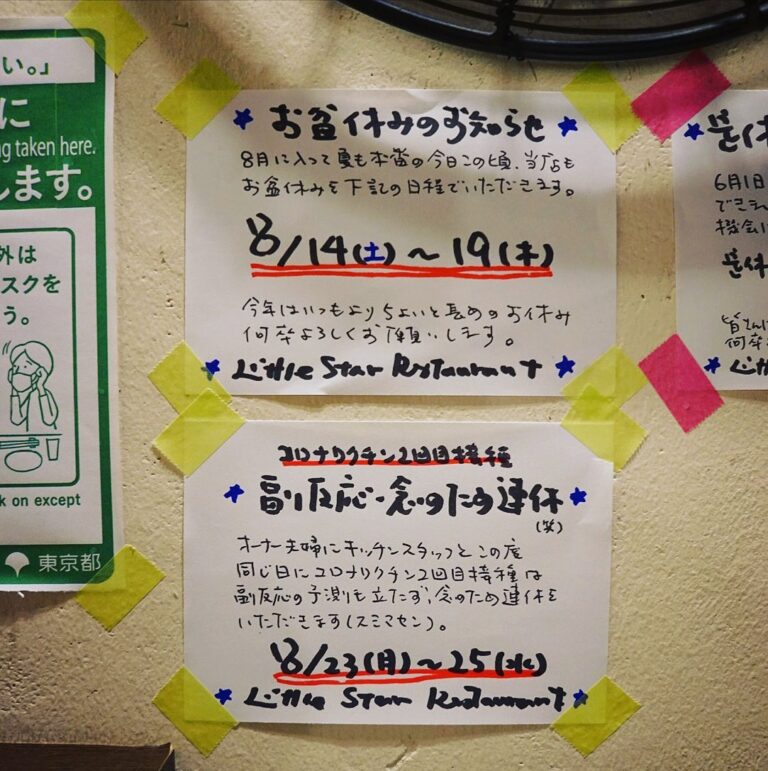 い。」
に
ng taken here.
します。
外は
スクを
う。
k on except
東京都
お盆休みのお知らせ
8月に入って夏も本番の今日この頃、当店も
お盆休みを下記の日程でいただきます。
8/14(土)～19(木)
今年はいつもよりちょいと長めのお休み
何卒よろしくお願いします。
Little Star Restaurant
コロナワクチン2回目接種
副反応・念のため連休
(笑)
オーナー夫婦にキッチンスタッフとこの度
同じ日にコロナワクチン2回目接種は
副反応の予測も立たず、念のため連休を
いただきます(スミマセン)。
8/23(月)～25(水)
Little Star Restaurant
6月1日
できま
機会に
皆さんに
何卒
Little